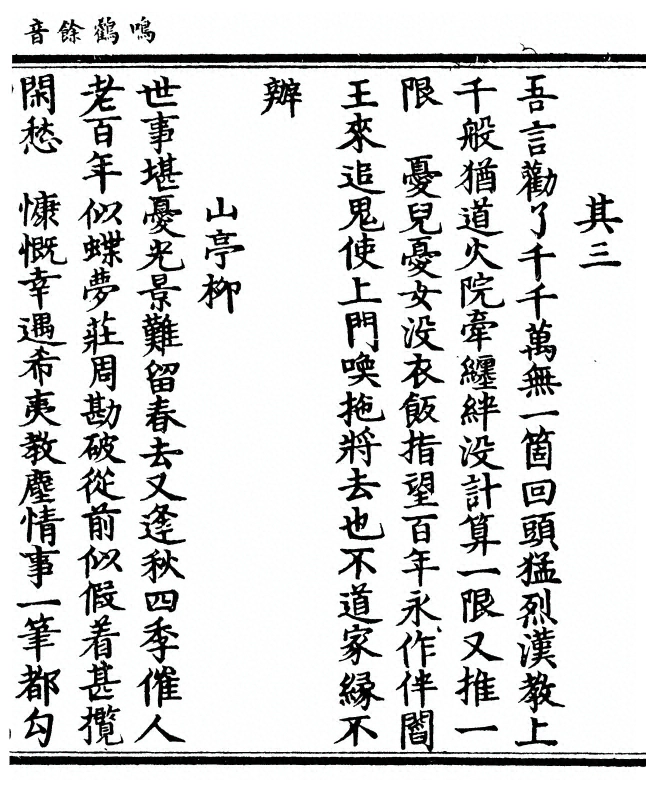 鳴鶴餘音
其三
吾言勸了千千萬無一箇回頭猛烈漢教上
千般猶道火院牽纏絆没計算一限又推一
限　憂兒憂女没衣飯指望百年永作伴閻
王來追鬼使上門喚拖將去也不道家縁不
辦
山亭柳
世事堪憂光景難留春去又逢秋四季催人
老百年似蝶夢莊周勘破從前似假着甚攬
閑愁　慷慨幸遇希夷教塵情事一筆都勾